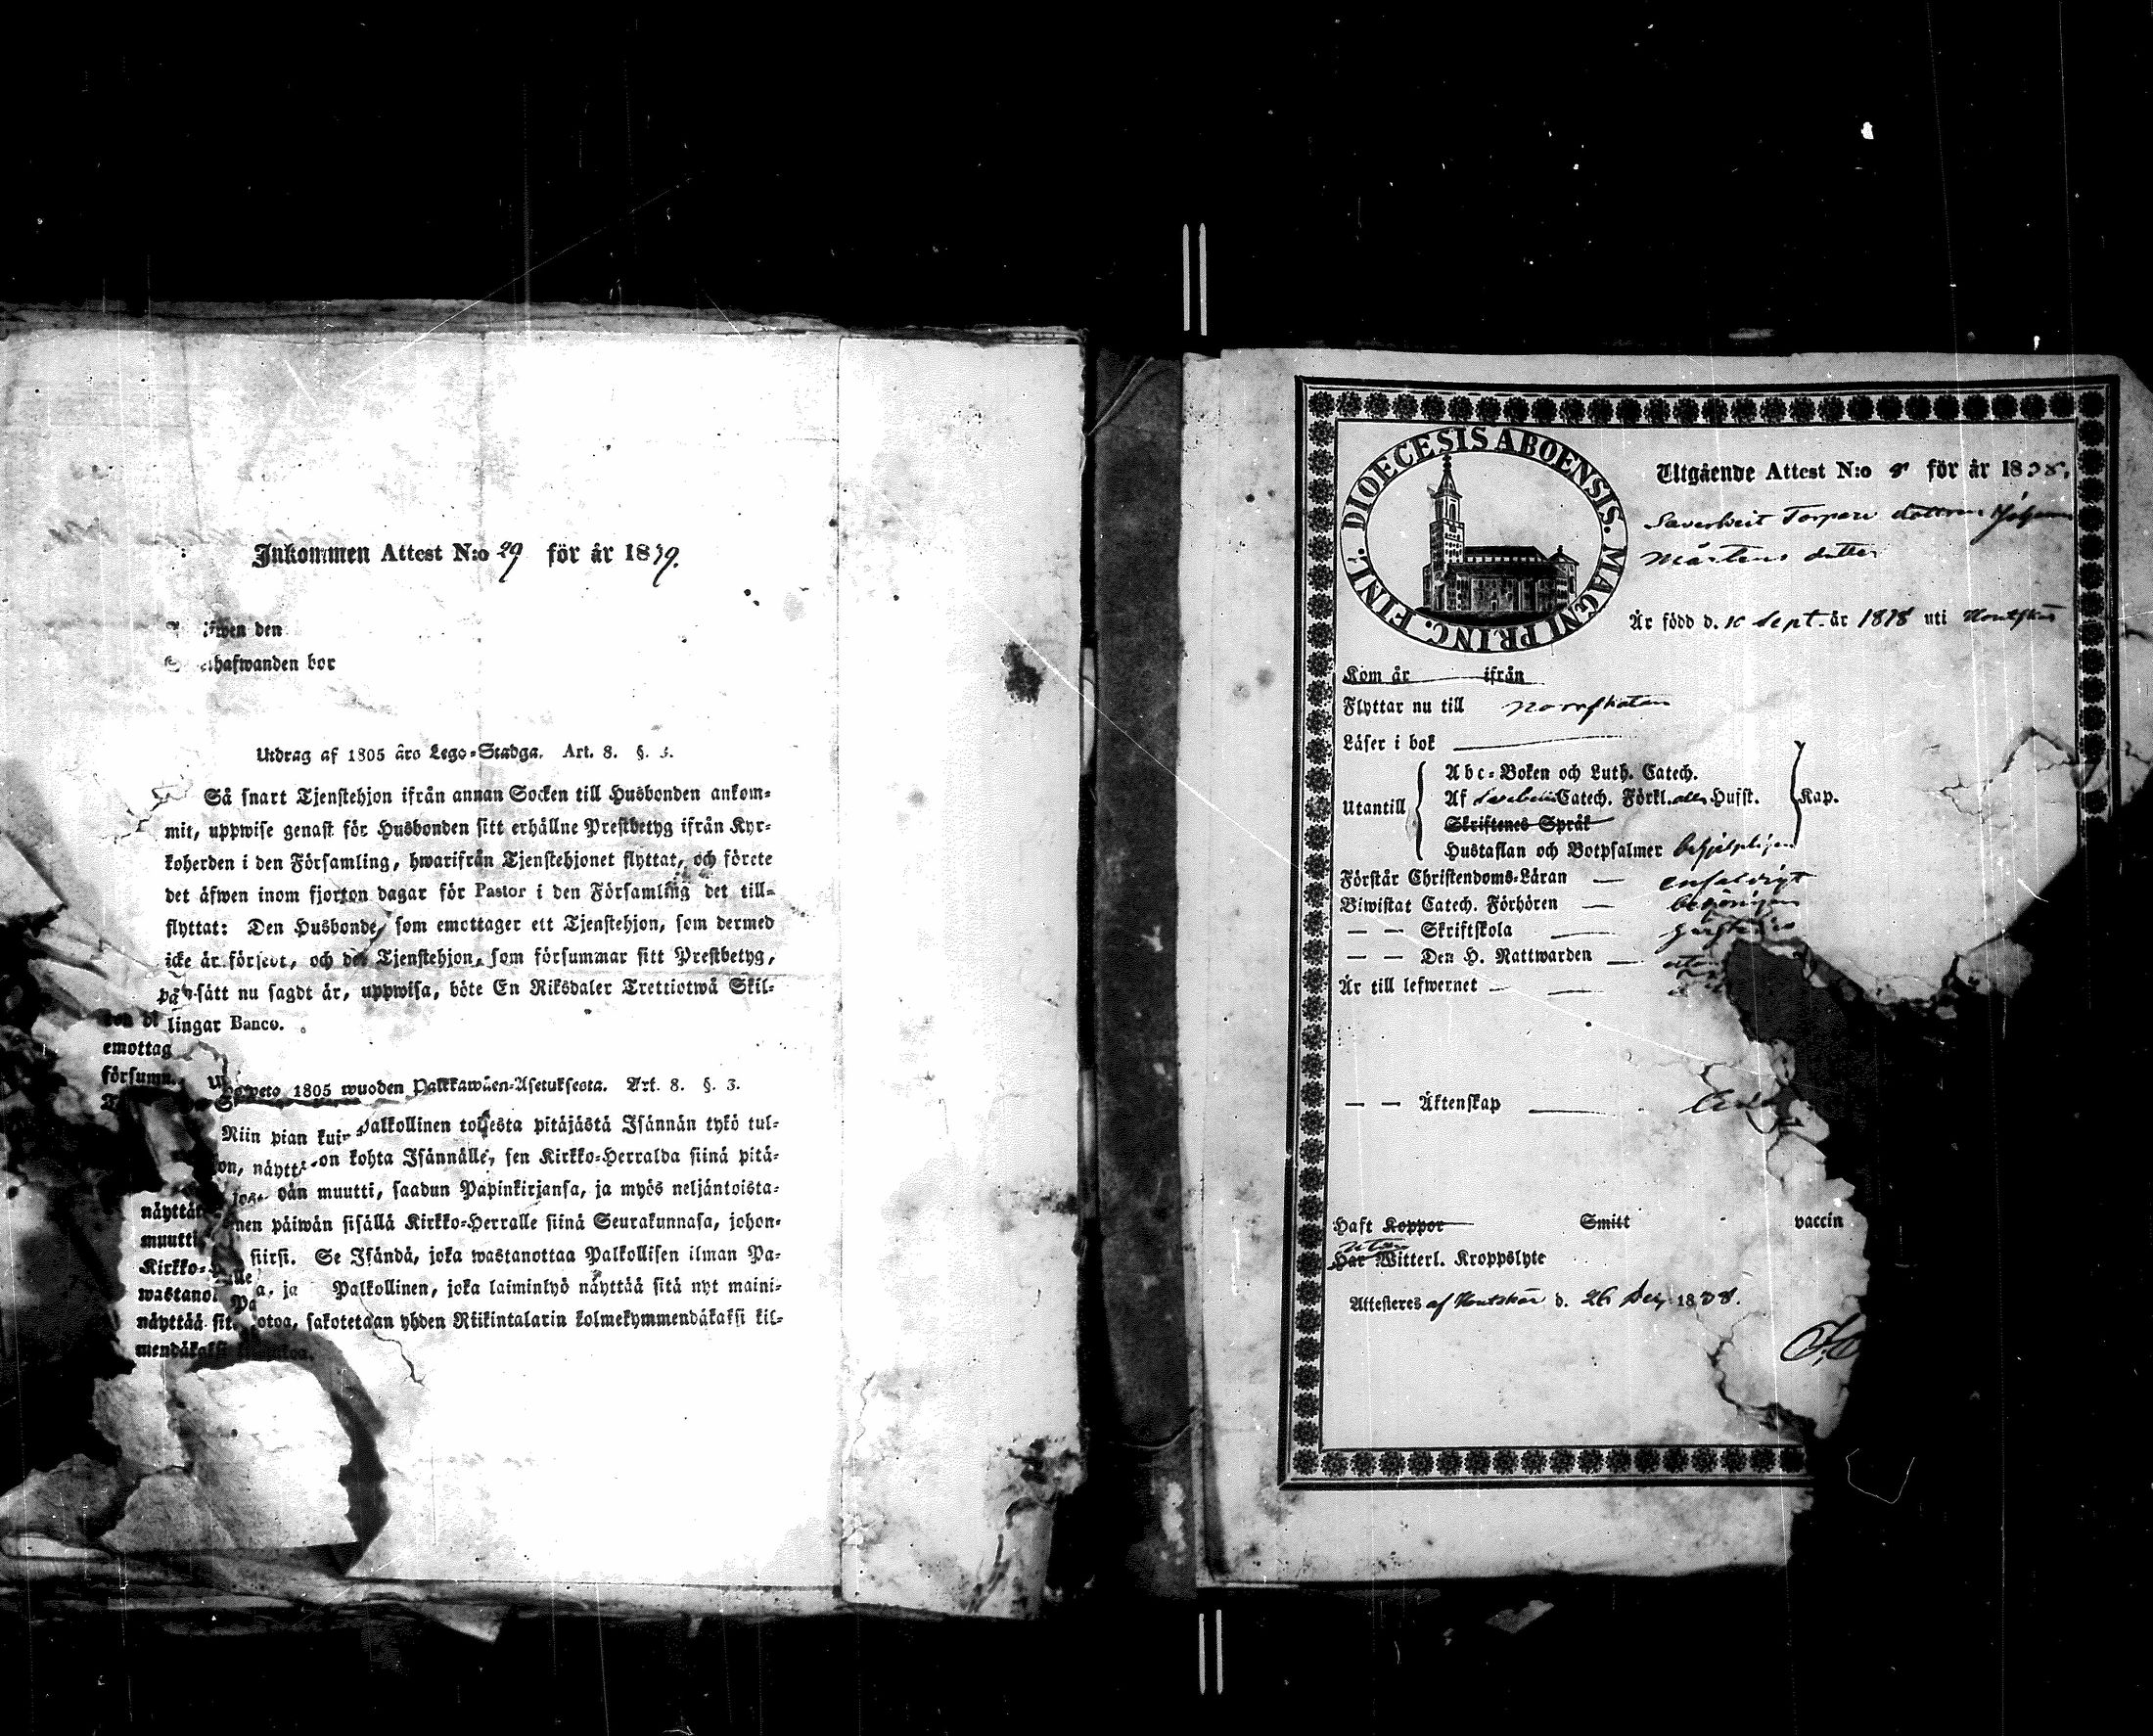 Inkommen Attest N:o 29 för år 1839.
den
bor
Utdrag af 1805 års Lego-Stadga. Art. 8. §. 3.
Så snart Tjenstehjon ifrån annan Socken till Husbonden ankom-
mit, uppwise genast för Husbonden sitt erhållne Prestbetyg ifrån Kyr-
koherden i den Församling, hwarifrån Tjenstehjonet flyttat, och förete
det äfwen inom fjorton dagar för Pastor i den Församling det till-
flyttat: Den Husbonde, som emottager ett Tjenstehjon, som dermed
icke är försedt, och det Tjenstehjon, som försummar sitt Prestbetyg,
på sätt nu sagdt är, uppwisa, böte En Riksdaler Trettiotwå Skil-
lingar Banco.
emottag
försum
1805 wuoden Palkkawäen-Asetuksesta. Art. 8. §. 3.
Niin pian kuin Palkollinen toisesta pitäjästä Isännän tykö tul-
on, näyttä on kohta Isännälle, sen Kirkko-Herralda siinä pitä-
muutti, saadun Papinkirjansa, ja myös neljäntoista-
näyttä nen päiwän sisällä Kirkko-Herralle siinä Seurakunnasa, johon-
muutti siirsi. Se Isändä, joka wastanottaa Palkollisen ilman Pa-
Kirkko-
wastano a, ja Palkollinen, joka laiminlyö näyttää sitä nyt maini-
näyttää sit otoa, sakotetaan yhden Riikintalarin kolmekymmendäkaksi kil-
mendäkaksi
DIOECESIS ABOENSIS. MAGNI PRINC. FINL.
Utgående Attest N:o 8 för år 1838.
Torpare dottren
Mårtens dotter
Är född d. Sept. år 1818 uti Houtskär
Kom år ifrån
Flyttar nu till
Läser i bok
Abc-Boken och Luth. Catech.
Utantill Af Catech. Förkl. Hufst. Kap.
Skriftenes Språk
Hustaflan och Botpsalmer
Förstår Christendoms-Läran enfaldigt
Biwistat Catech. Förhören
— — Skriftskola
— — Den H. Nattwarden
Är till lefwernet
— — Äktenskap
Haft Koppor Smitt vaccin
utan
Har Witterl. Kroppslyte
Attesteres af Houtskär d. 26 Dec. 1838.